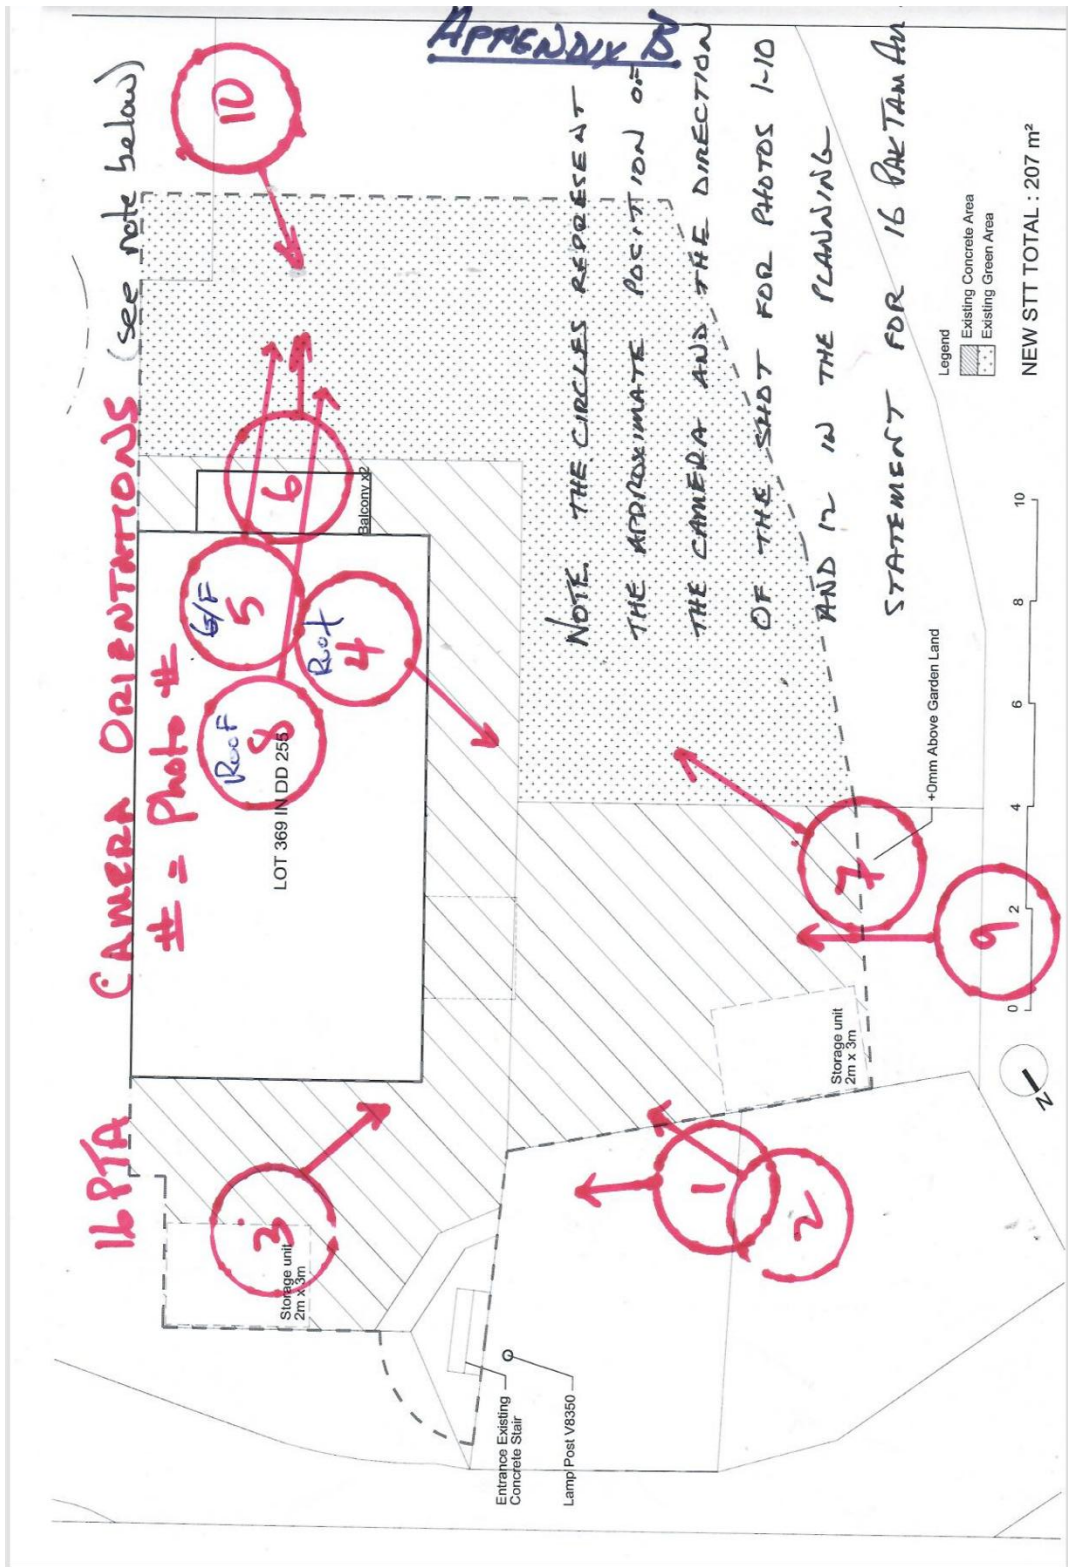 APPENDIX B
16 PTA CAMERA ORIENTATIONS (see note below)
# = Photo #
10
6
G/F
5
Roof
4
Roof
8
7
9
3
1
2
NOTE. THE CIRCLES REPRESENT
THE APPROXIMATE POSITION OF
THE CAMERA AND THE DIRECTION
OF THE SHOT FOR PHOTOS 1-10
AND 12 IN THE PLANNING
STATEMENT FOR 16 PAK TAM AU
Balcony x2
LOT 369 IN DD 255
Storage unit
2m x 3m
Storage unit
2m x 3m
+0mm Above Garden Land
Entrance Existing
Concrete Stair
Lamp Post V8350
Legend
Existing Concrete Area
Existing Green Area
NEW STT TOTAL : 207 m²
0 2 4 6 8 10
N